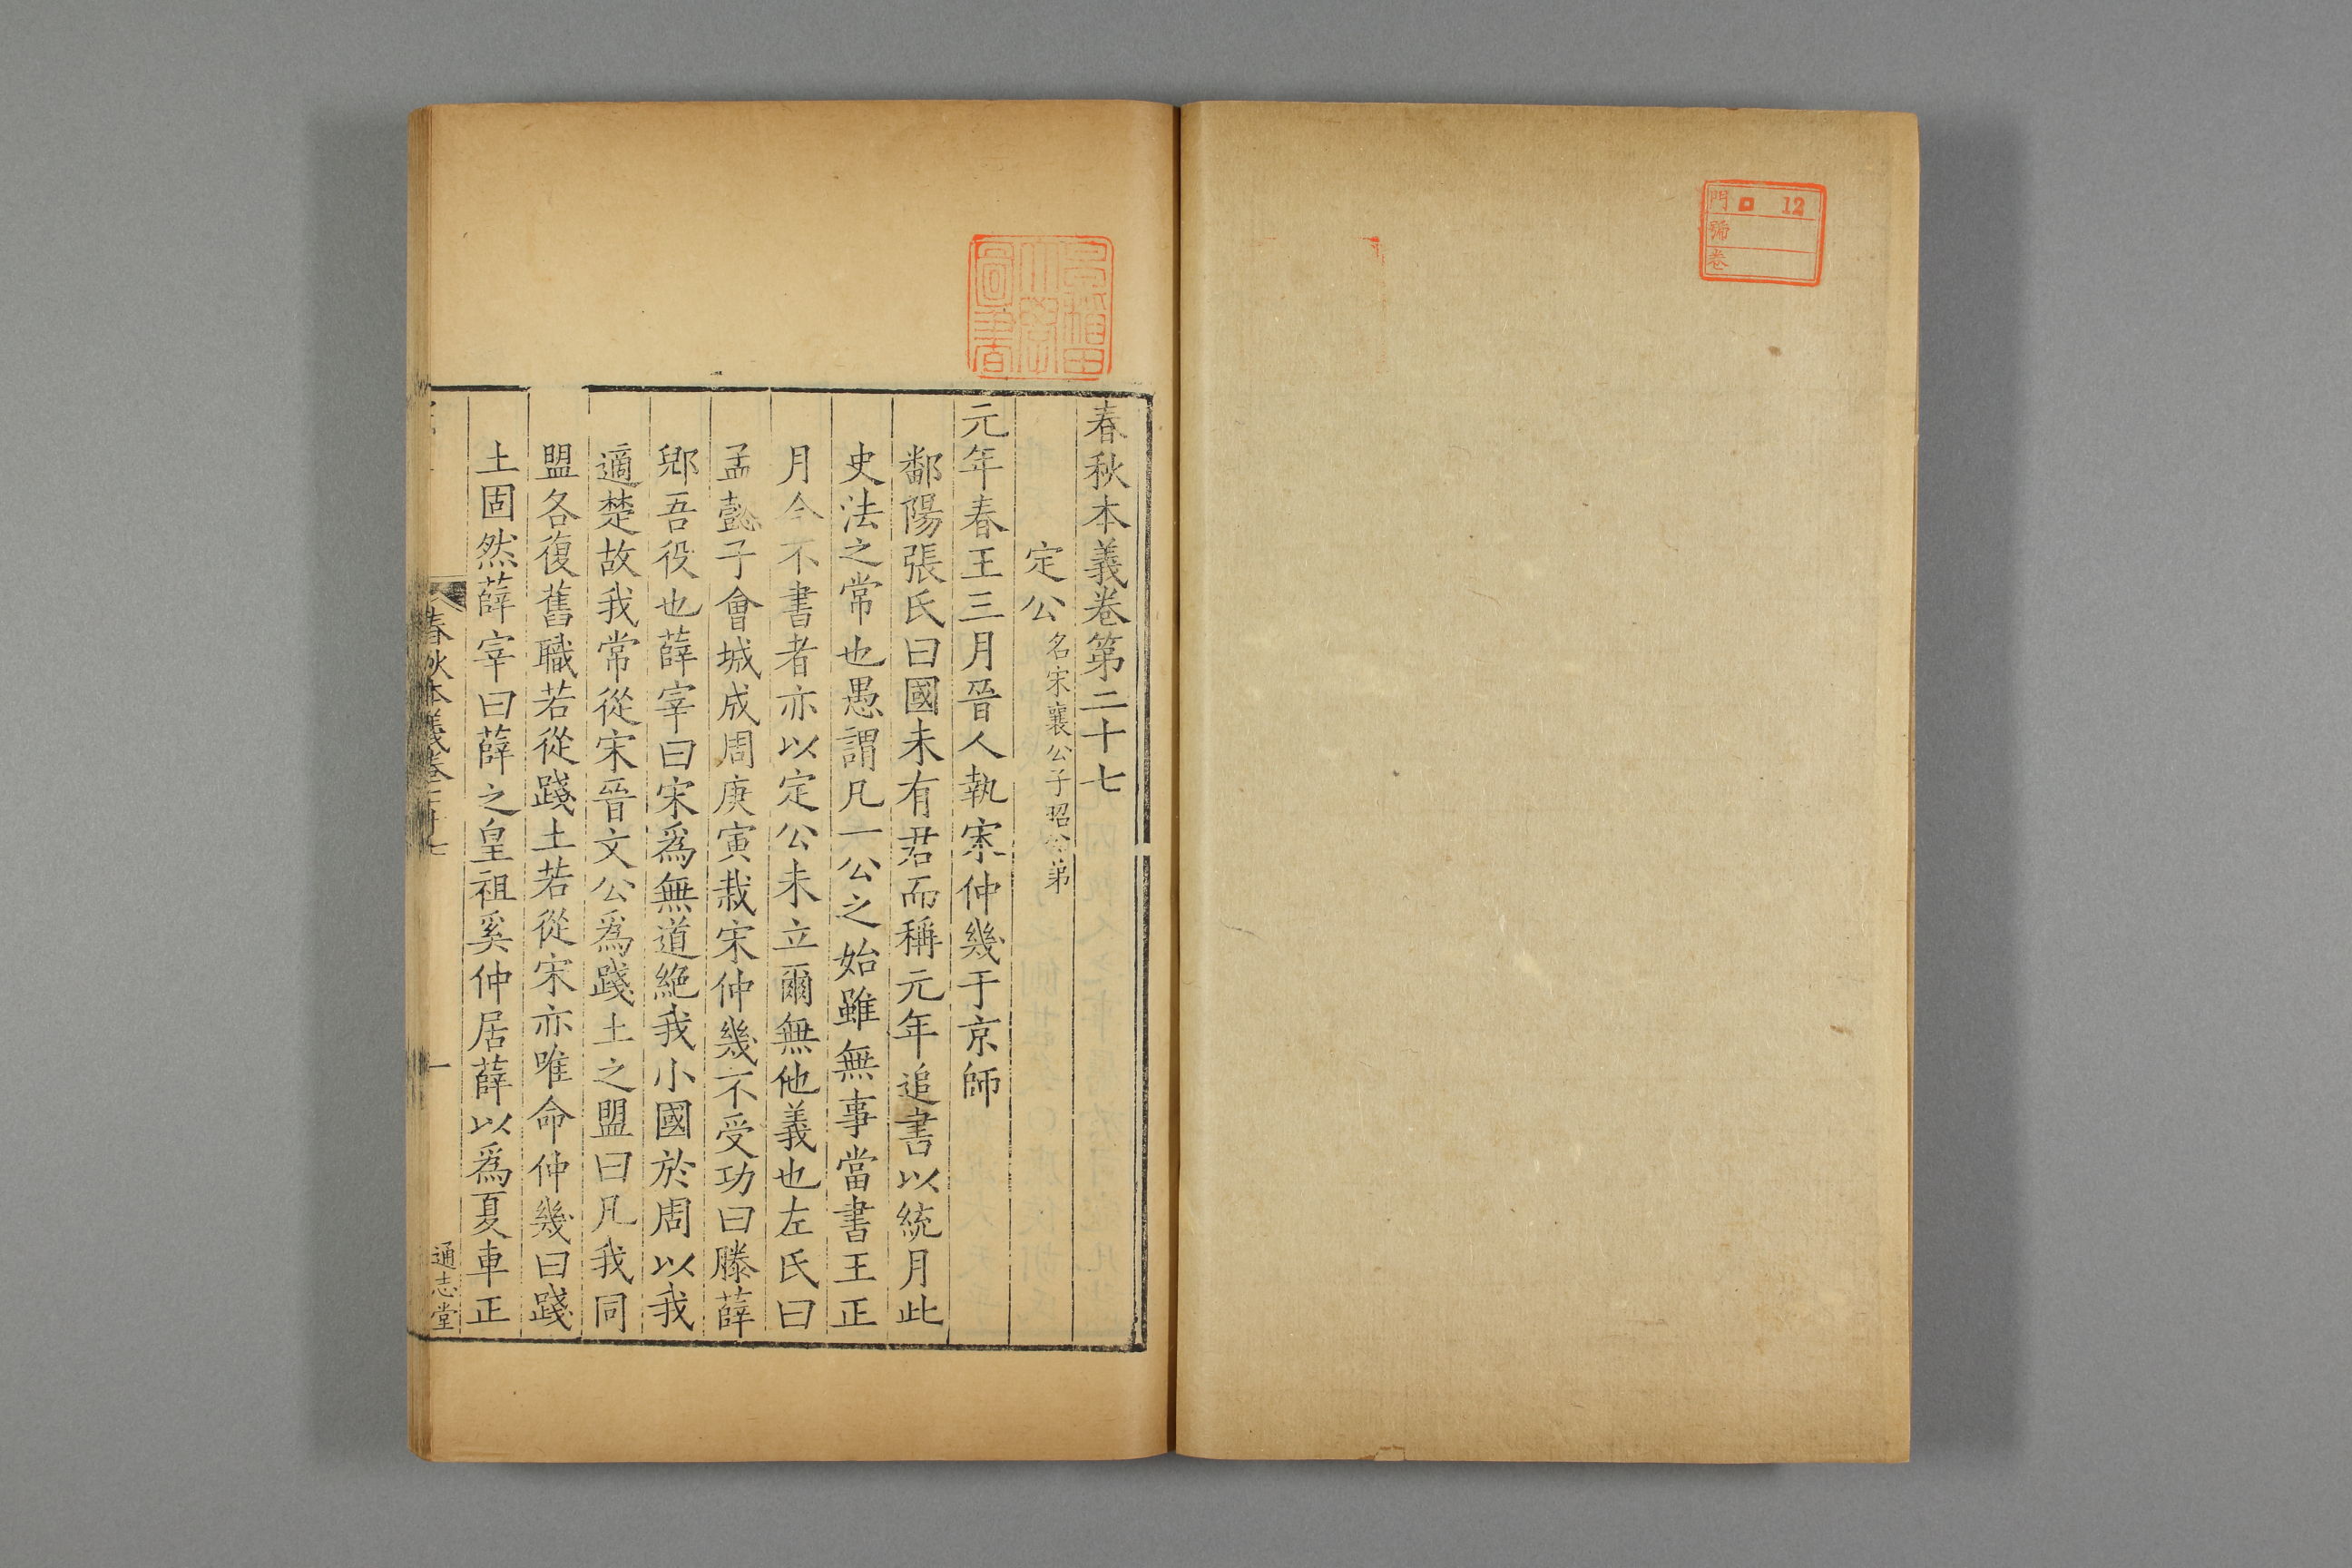 門 ロ 12
號
卷
早稲田大學圖書
春秋本義卷第二十七
定公 名宋襄公子昭公弟
元年春王三月晉人執宋仲幾于京師
鄱陽張氏曰國未有君而稱元年追書以統月此
史法之常也愚謂凡一公之始雖無事當書王正
月今不書者亦以定公未立爾無他義也左氏曰
孟懿子會城成周庚寅栽宋仲幾不受功曰滕薛
郳吾役也薛宰曰宋爲無道絶我小國於周以我
適楚故我常從宋晉文公爲踐土之盟曰凡我同
盟各復舊職若從踐土若從宋亦唯命仲幾曰踐
土固然薛宰曰薛之皇祖奚仲居薛以爲夏車正
春秋本義卷二十七
一
通志堂